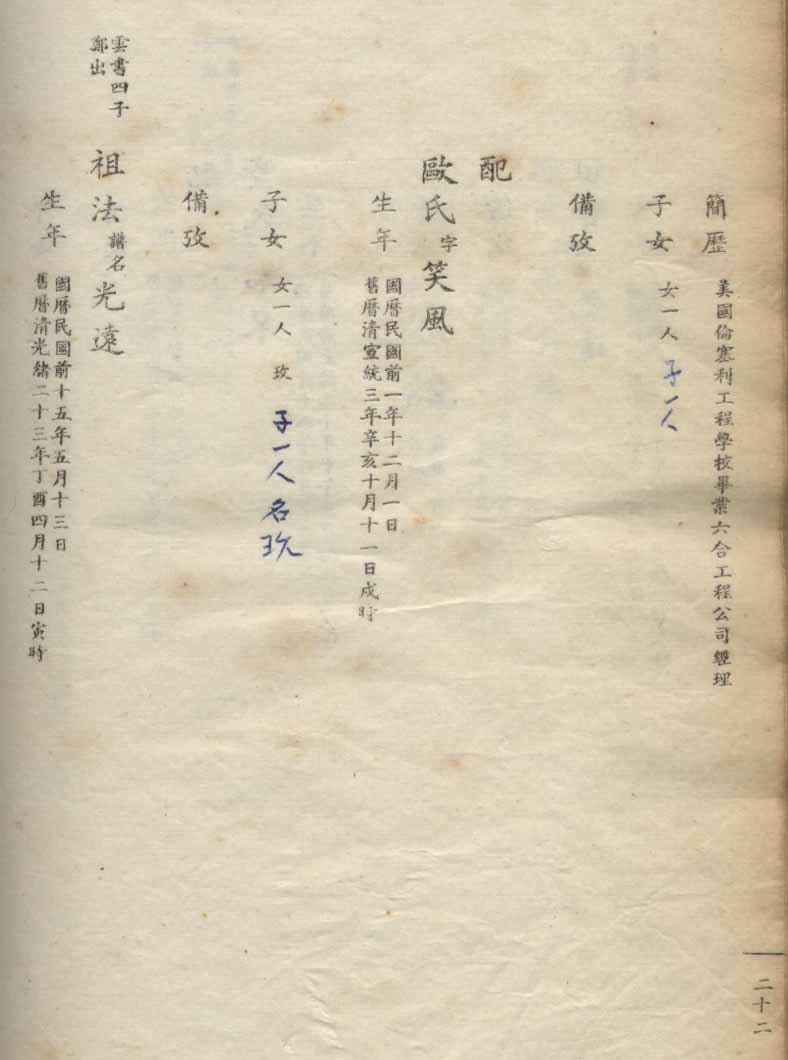 簡歷 美國倫塞利工程學校畢業六合工程公司經理
子女 女一人 子一人
備攷
配
歐氏字笑風
生年 國曆民國前一年十二月一日
舊曆清宣統三年辛亥十月十一日戌時
子女 女一人 玫 子一人名玖
備攷
雲書四子
鄭出
祖法譜名光遠
生年 國曆民國前十五年五月十三日
舊曆清光緒二十三年丁酉四月十二日寅時
二十二